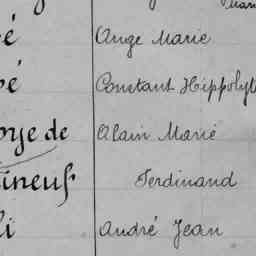 é Ange Marie
é Constant Hippolyt
oye de Alain Marie
ineuf Ferdinand
li André Jean